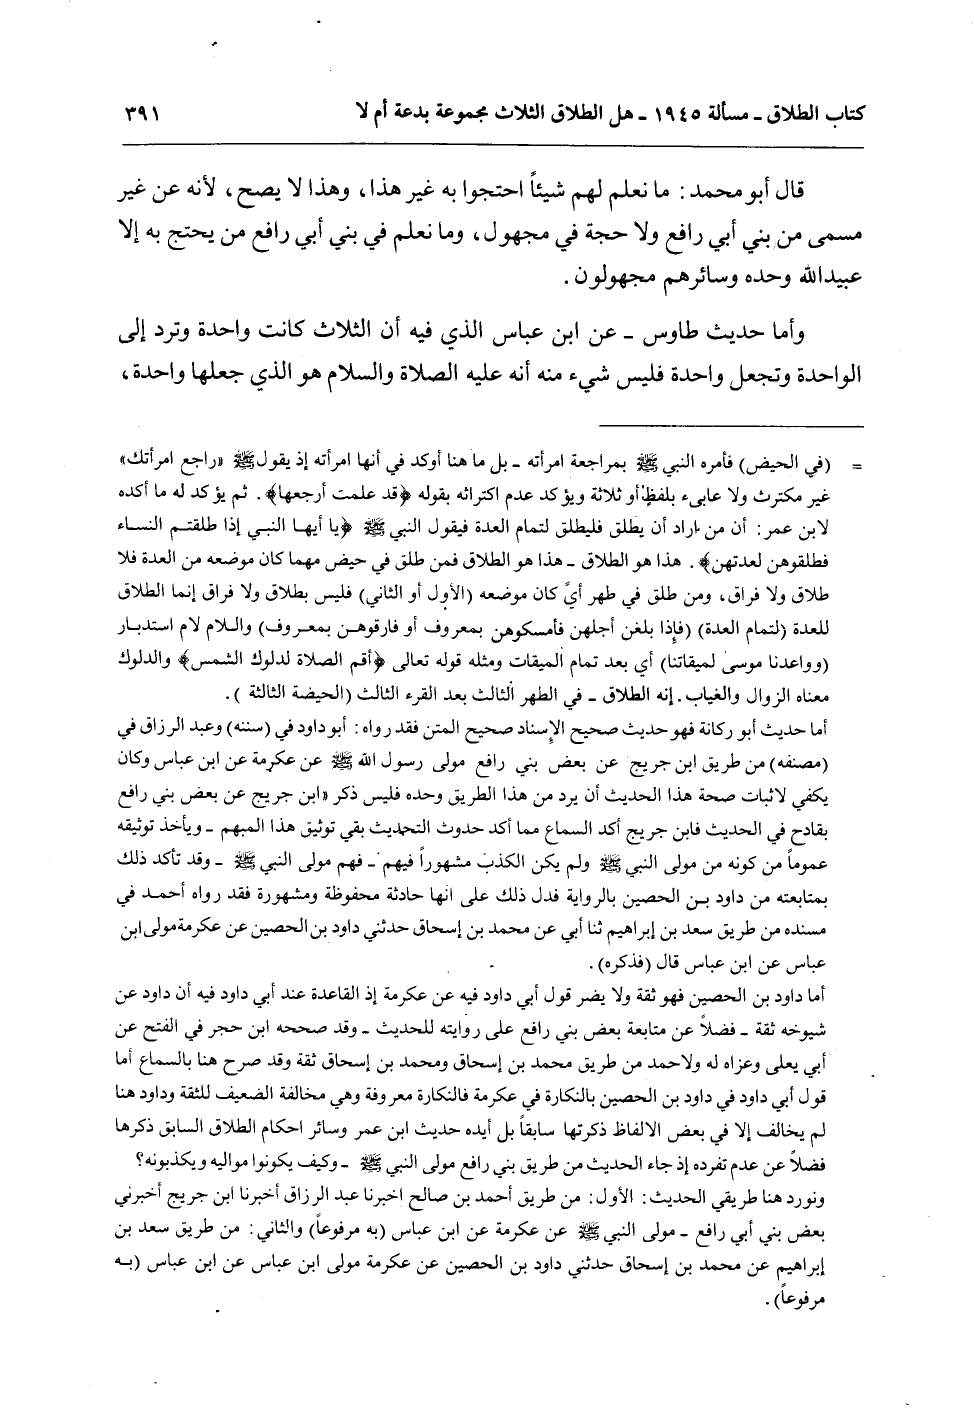 كتاب الطلاق ـ مسألة ١٩٤٥ ـ هل الطلاق الثلاث مجموعة بدعة أم لا ٣٩١
قال أبو محمد : ما نعلم لهم شيئاً احتجوا به غير هذا، وهذا لا يصح، لأنه عن غير
مسمى من بني أبي رافع ولا حجة في مجهول، وما نعلم في بني أبي رافع من يحتج به إلا
عبيدالله وحده وسائرهم مجهولون.
وأما حديث طاوس ـ عن ابن عباس الذي فيه أن الثلاث كانت واحدة وترد إلى
الواحدة وتجعل واحدة فليس شيء منه أنه عليه الصلاة والسلام هو الذي جعلها واحدة،
= (في الحيض) فأمره النبي ﷺ بمراجعة امرأته ـ بل ما هنا أوكد في أنها امرأته إذ يقول ﷺ «راجع امرأتك»
غير مكترث ولا عابىء بلفظ أو ثلاثة ويؤكد عدم اكتراثه بقوله ﴿قد علمت أرجعها﴾. ثم يؤكد له ما أكده
لابن عمر: أن من اراد أن يطلق فليطلق لتمام العدة فيقول النبي ﷺ ﴿يا أيها النبي إذا طلقتم النساء
فطلقوهن لعدتهن﴾. هذا هو الطلاق ـ هذا هو الطلاق فمن طلق في حيض مهما كان موضعه من العدة فلا
طلاق ولا فراق، ومن طلق في طهر أيً كان موضعه (الأول أو الثاني) فليس بطلاق ولا فراق إنما الطلاق
للعدة (لتمام العدة) (فإذا بلغن أجلهن فأمسكوهن بمعروف أو فارقوهن بمعروف) واللام لام استدبار
(وواعدنا موسى لميقاتنا) أي بعد تمام الميقات ومثله قوله تعالى ﴿أقم الصلاة لدلوك الشمس﴾ والدلوك
معناه الزوال والغياب. إنه الطلاق ـ في الطهر الثالث بعد القرء الثالث (الحيضة الثالثة ).
أما حديث أبو ركانة فهو حديث صحيح الإسناد صحيح المتن فقد رواه: أبو داود في (سننه) وعبد الرزاق في
(مصنفه) من طريق ابن جريج عن بعض بني رافع مولى رسول الله ﷺ عن عكرمة عن ابن عباس وكان
يكفي لاثبات صحة هذا الحديث أن يرد من هذا الطريق وحده فليس ذكر «ابن جريج عن بعض بني رافع
بقادح في الحديث فابن جريج أكد السماع مما أكد حدوث التحديث بقي توثيق هذا المبهم ـ ويأخذ توثيقه
عموماً من كونه من مولى النبي ﷺ ولم يكن الكذب مشهوراً فيهم ـ فهم مولى النبي ﷺ ـ وقد تأكد ذلك
بمتابعته من داود بن الحصين بالرواية فدل ذلك على انها حادثة محفوظة ومشهورة فقد رواه أحمد في
مسنده من طريق سعد بن إبراهيم ثنا أبي عن محمد بن إسحاق حدثني داود بن الحصين عن عكرمة مولى ابن
عباس عن ابن عباس قال (فذكره).
أما داود بن الحصين فهو ثقة ولا يضر قول أبي داود فيه عن عكرمة إذ القاعدة عند أبي داود فيه أن داود عن
شيوخه ثقة ـ فضلاً عن متابعة بعض بني رافع على روايته للحديث ـ وقد صححه ابن حجر في الفتح عن
أبي يعلى وعزاه له ولاحمد من طريق محمد بن إسحاق ومحمد بن إسحاق ثقة وقد صرح هنا بالسماع أما
قول أبي داود في داود بن الحصين بالنكارة في عكرمة فالنكارة معروفة وهي مخالفة الضعيف للثقة وداود هنا
لم يخالف إلا في بعض الالفاظ ذكرتها سابقاً بل أيده حديث ابن عمر وسائر احكام الطلاق السابق ذكرها
فضلاً عن عدم تفرده إذ جاء الحديث من طريق بني رافع مولى النبي ﷺ ـ وكيف يكونوا مواليه ويكذبونه؟
ونورد هنا طريقي الحديث: الأول: من طريق أحمد بن صالح اخبرنا عبد الرزاق أخبرنا ابن جريج أخبرني
بعض بني أبي رافع ـ مولى النبي ﷺ عن عكرمة عن ابن عباس (به مرفوعاً) والثاني: من طريق سعد بن
إبراهيم عن محمد بن إسحاق حدثني داود بن الحصين عن عكرمة مولى ابن عباس عن ابن عباس (به
مرفوعاً).